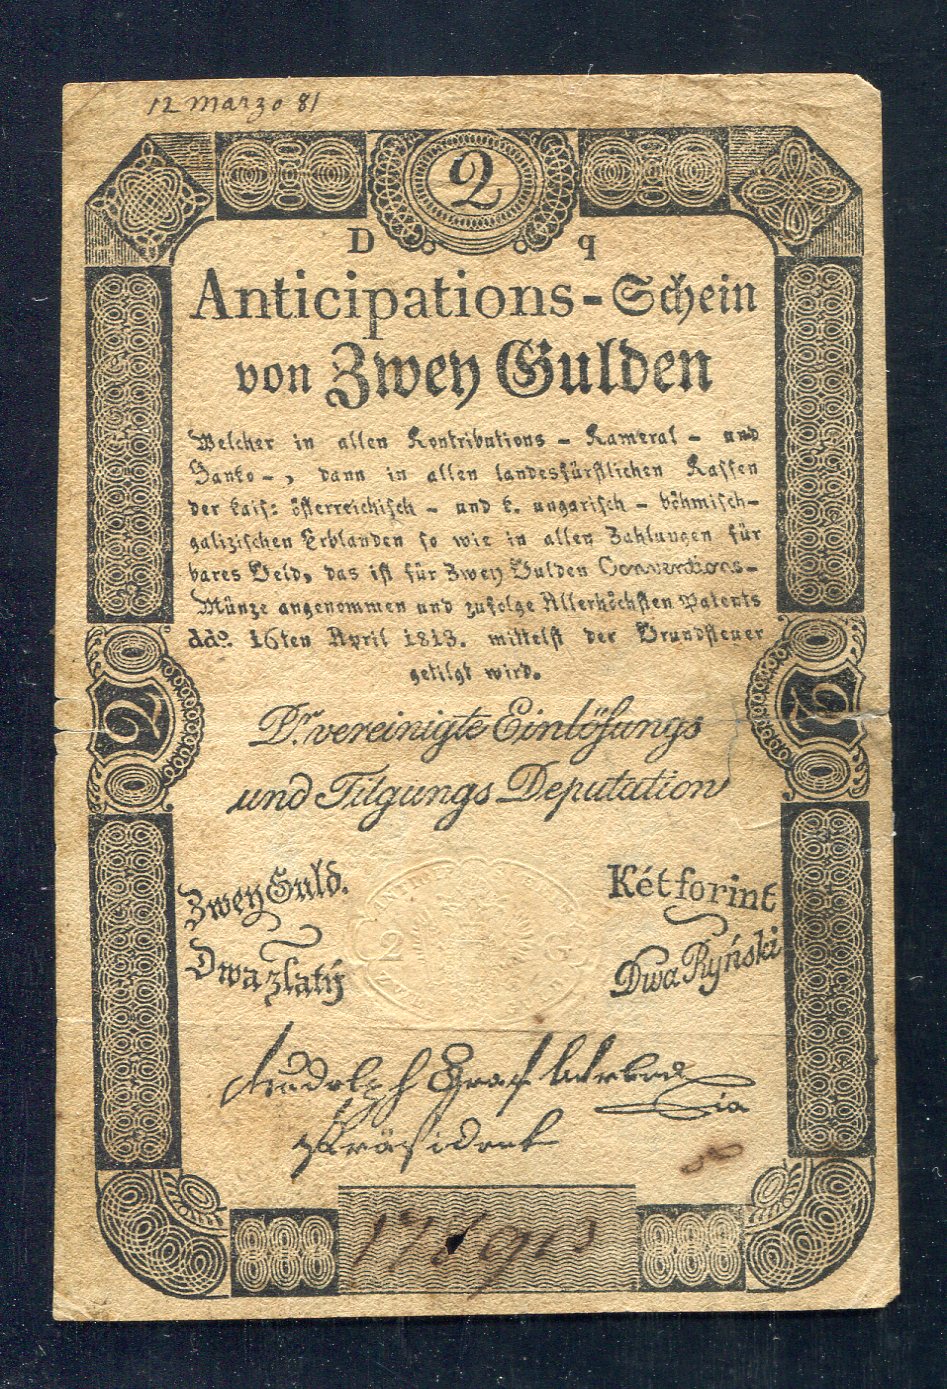 12 Marzo 81
2
D q
Anticipations-Schein
von Zwey Gulden
Welcher in allen Kontributions - Kameral - und
Banko-, dann in allen landesfürstlichen Kassen
der kais: österreichisch - und k. ungarisch - böhmisch-
galizischen Erblanden so wie in allen Zahlungen für
bares Geld, das ist für Zwey Gulden Conventions-
Münze angenommen und zufolge Allerhöchsten Patents
ddo. 16ten April 1813. mittelst der Grundsteuer
getilgt wird.
2 2
Dr. vereinigte Einlösungs
und Tilgungs Deputation
Zwey Guld. Két forint
Dwa zlatý Dwa Ryński
2 G
Rudolph Graf
Präsident